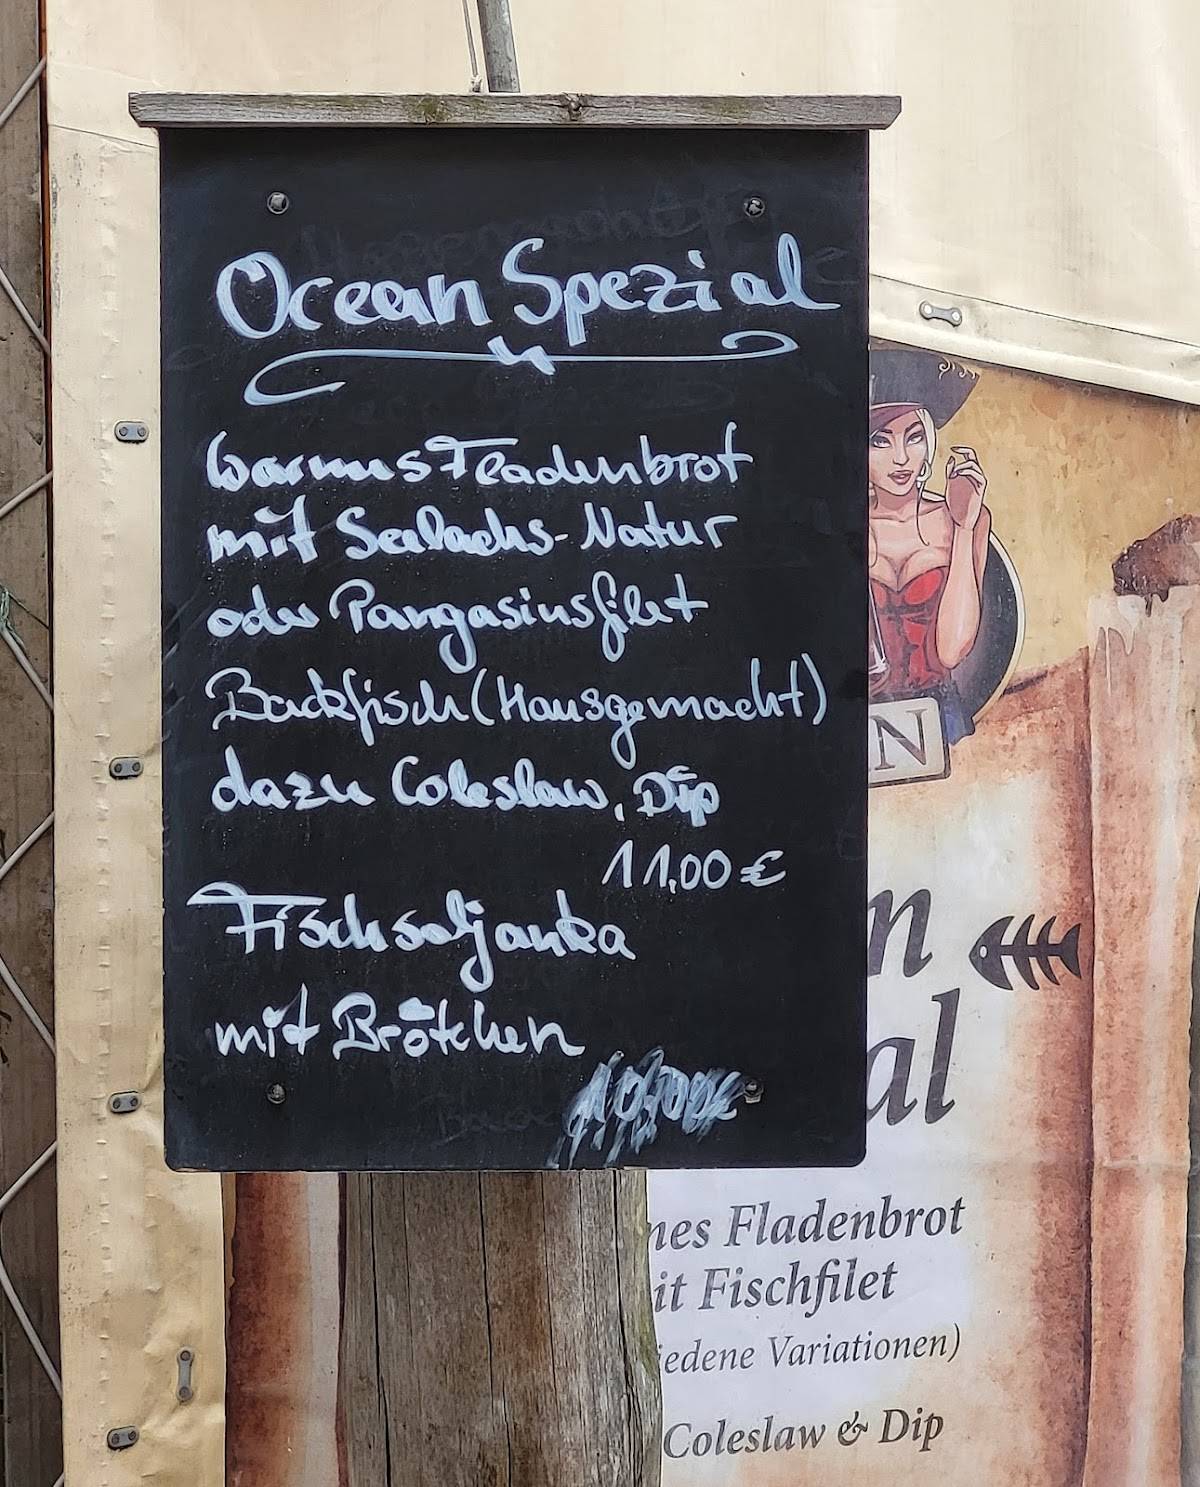 Ocean Spezial
Warmes Fladenbrot
mit Seelachs-Natur
oder Pangasiusfilet
Backfisch (Hausgemacht)
dazu Coleslaw, Dip
11,00 €
Fischsoljanka
mit Brötchen
N
n
al
nes Fladenbrot
it Fischfilet
iedene Variationen)
Coleslaw & Dip